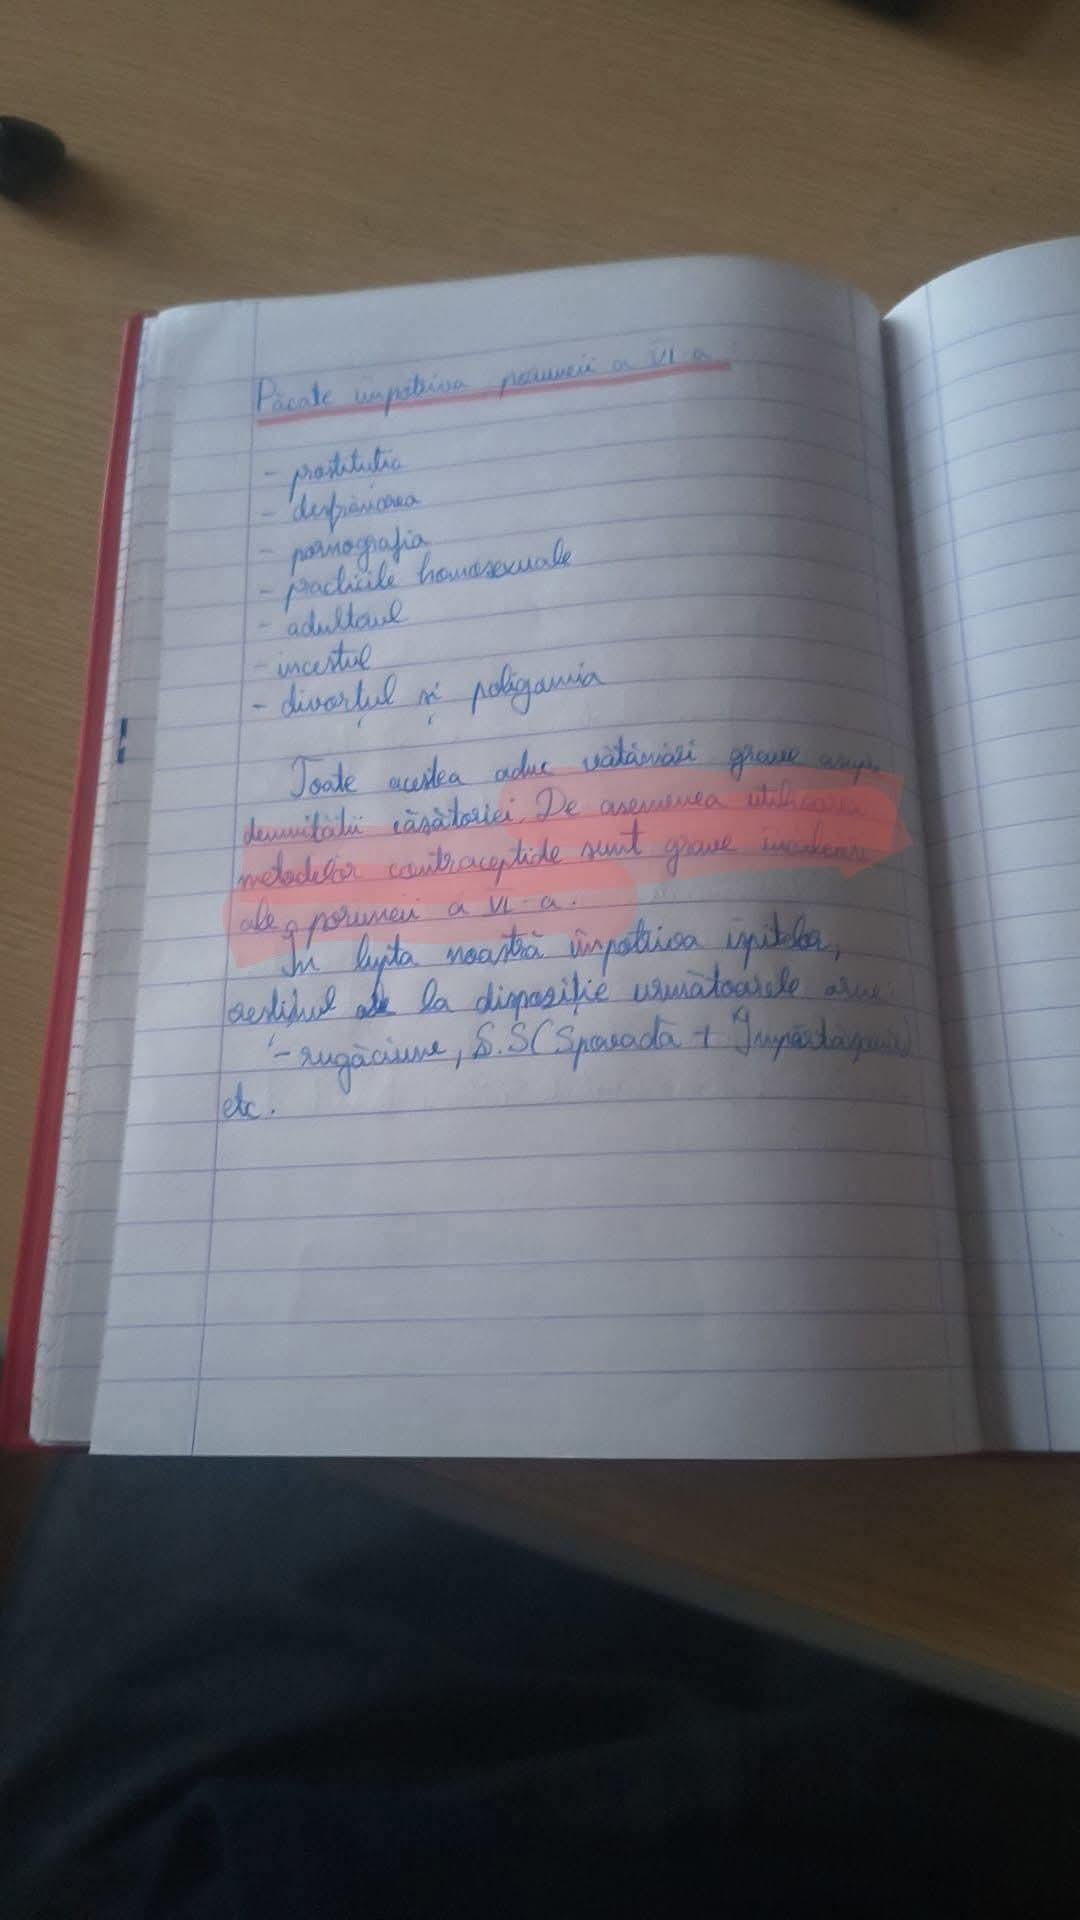 Păcate împotriva poruncii a VI-a
- prostituția
- desfrânarea
- pornografia
- practicile homosexuale
- adulterul
- incestul
- divorțul și poligamia
Toate acestea aduc vătămări grave
demnității căsătoriei. De asemenea utilizarea
metodelor contraceptide sunt grave încălcări
ale poruncii a VI-a.
În lupta noastră împotriva ispitelor,
creștinul are la dispoziție următoarele arme:
- rugăciune, S.S (Spovadă + Împărtășanie)
etc.